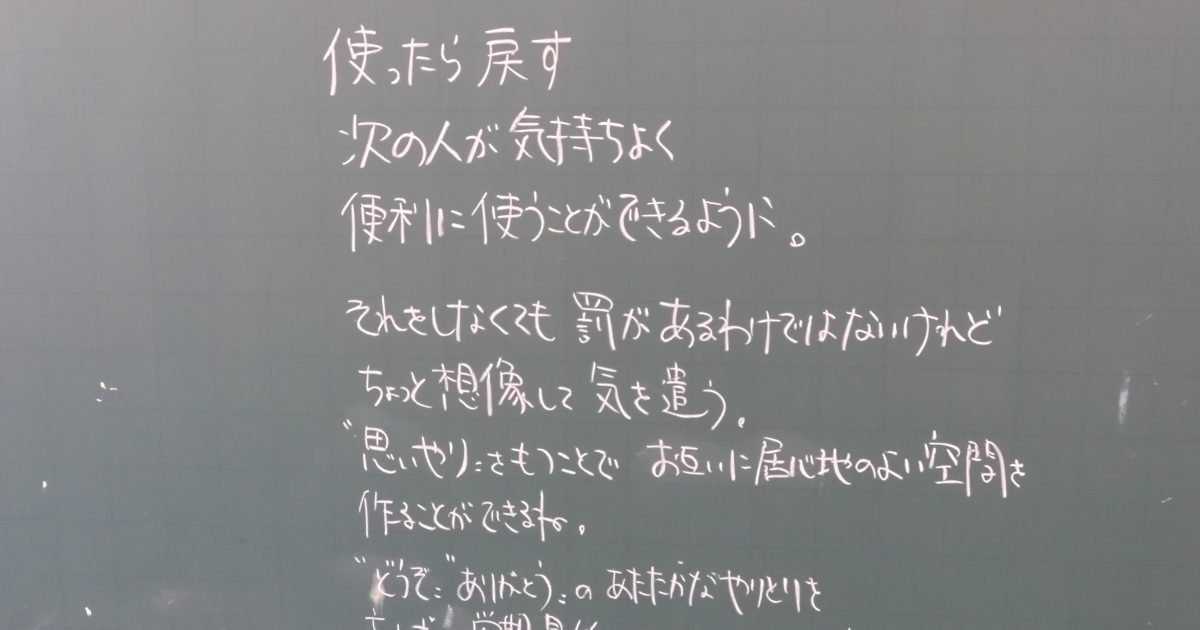 使ったら戻す
次の人が気持ちよく
便利に使うことができるように。
それをしなくても罰があるわけではないけれど
ちょっと想像して気を遣う。
"思いやり"をもつことで お互いに居心地のよい空間を
作ることができるね。
"どうぞ" "ありがとう"の あたたかなやりとりを